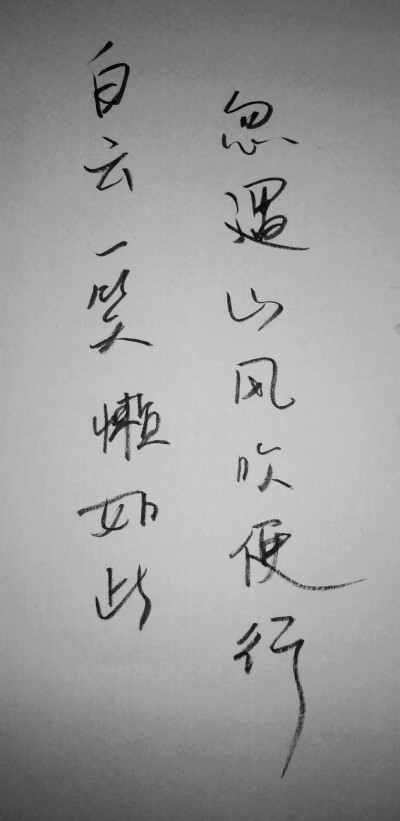 白云一笑懒如此
忽遇山风吹便行